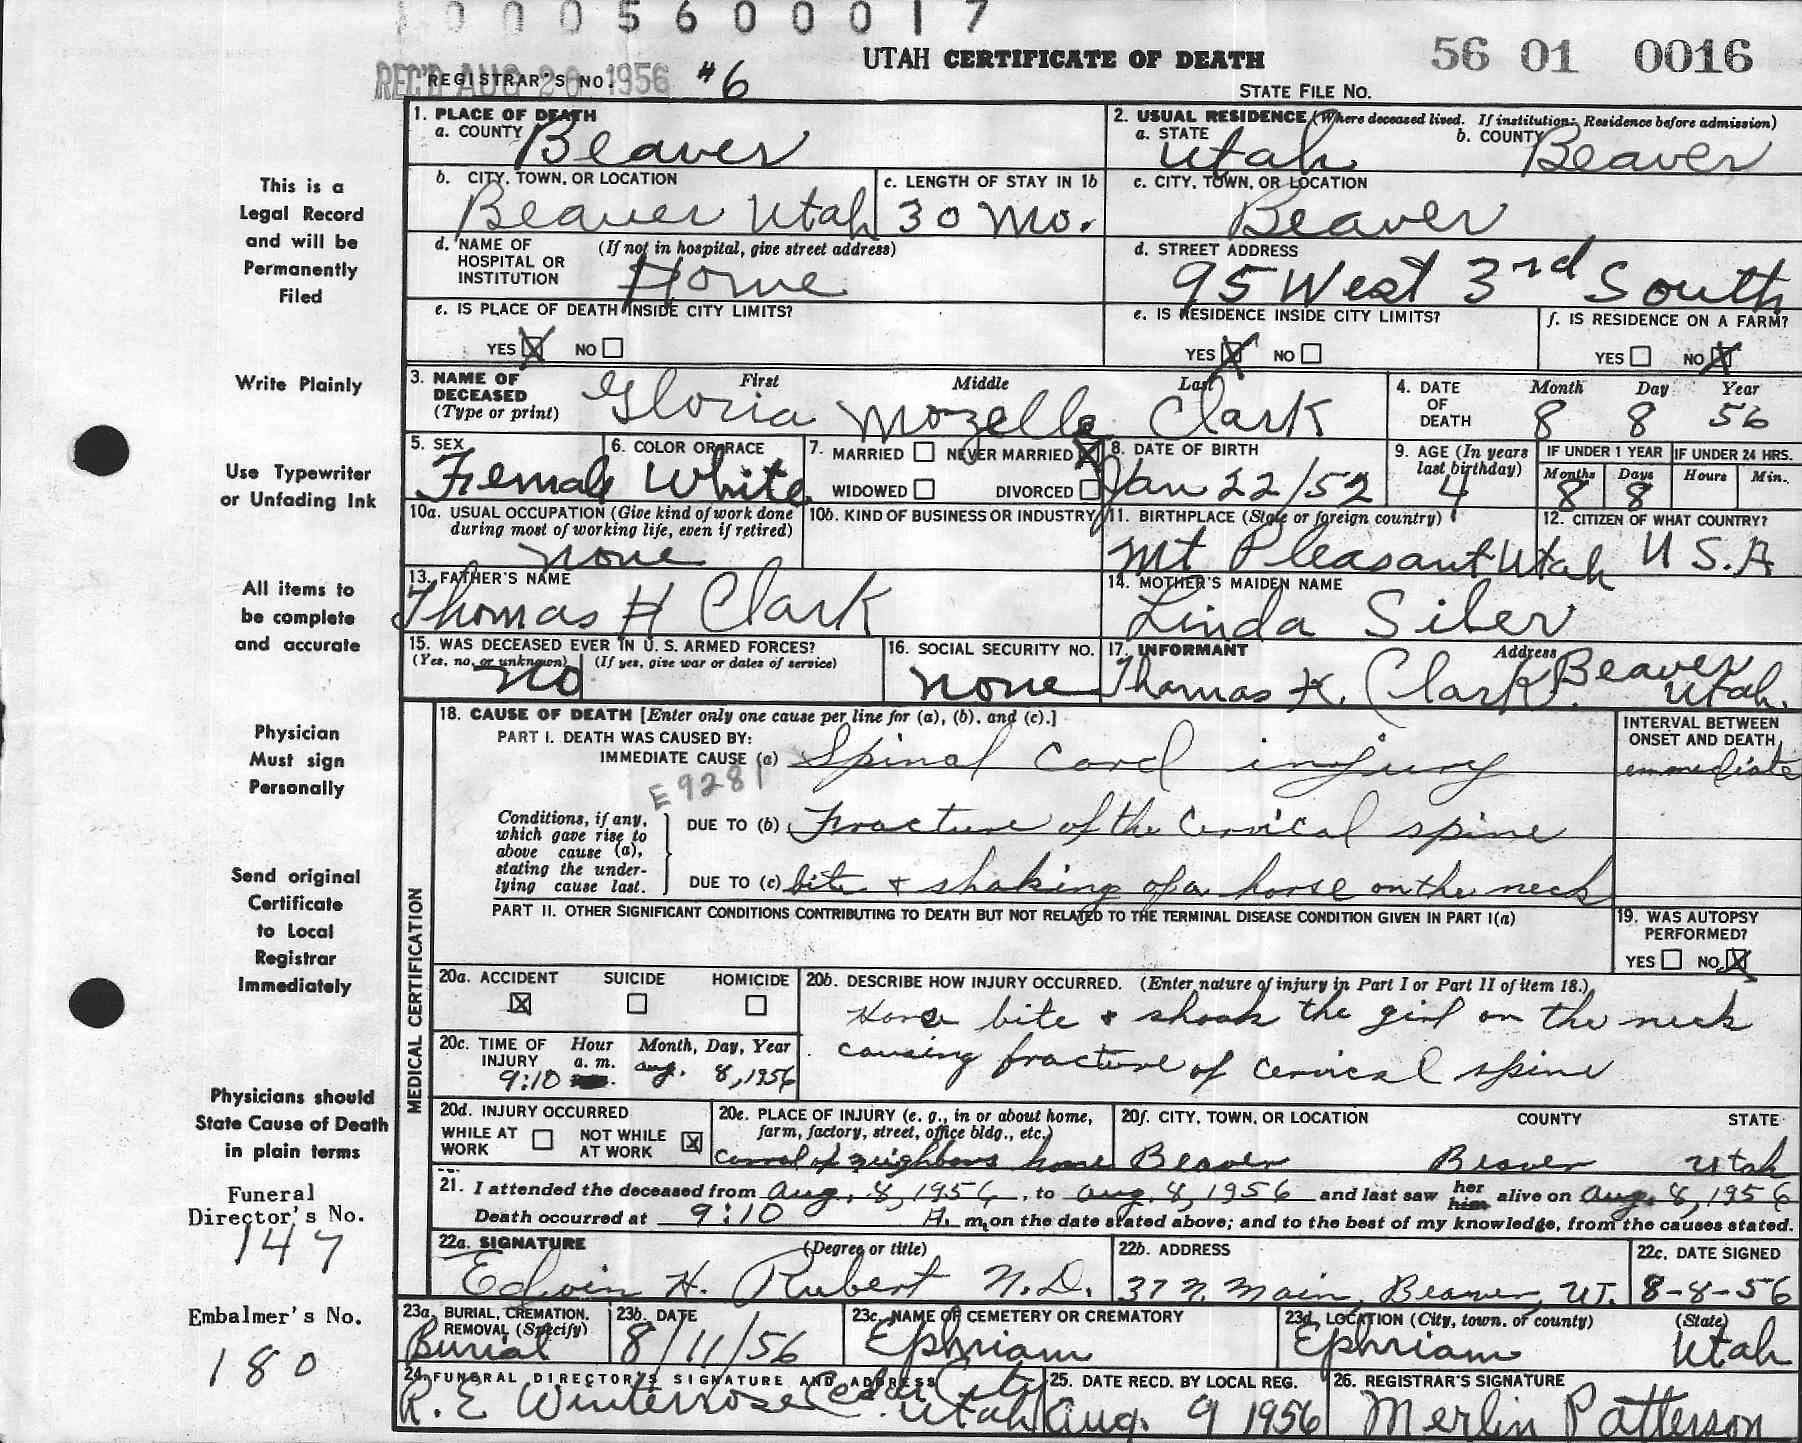 0 0 0 5 6 0 0 0 1 7
UTAH CERTIFICATE OF DEATH
56 01 0016
REC'D AUG 20 1956
REGISTRAR'S NO. #6
STATE FILE NO.
This is a
Legal Record
and will be
Permanently
Filed
Write Plainly
Use Typewriter
or Unfading Ink
All items to
be complete
and accurate
Physician
Must sign
Personally
Send original
Certificate
to Local
Registrar
Immediately
Physicians should
State Cause of Death
in plain terms
Funeral
Director's No.
147
Embalmer's No.
180
1. PLACE OF DEATH
a. COUNTY Beaver
2. USUAL RESIDENCE (Where deceased lived. If institution: Residence before admission)
a. STATE Utah b. COUNTY Beaver
b. CITY, TOWN, OR LOCATION Beaver Utah
c. LENGTH OF STAY IN 1b 30 Mo.
c. CITY, TOWN, OR LOCATION Beaver
d. NAME OF HOSPITAL OR INSTITUTION (If not in hospital, give street address) Home
d. STREET ADDRESS 95 West 3rd South
e. IS PLACE OF DEATH INSIDE CITY LIMITS?
YES X NO
e. IS RESIDENCE INSIDE CITY LIMITS?
YES X NO
f. IS RESIDENCE ON A FARM?
YES NO X
3. NAME OF DECEASED (Type or print) First Middle Last
Gloria Mozelle Clark
4. DATE OF DEATH Month Day Year
8 8 56
5. SEX Female
6. COLOR OR RACE White
7. MARRIED NEVER MARRIED X
WIDOWED DIVORCED
8. DATE OF BIRTH Jan 22/52
9. AGE (In years last birthday) 4
IF UNDER 1 YEAR Months 8 Days 8
IF UNDER 24 HRS. Hours Min.
10a. USUAL OCCUPATION (Give kind of work done during most of working life, even if retired) none
10b. KIND OF BUSINESS OR INDUSTRY
11. BIRTHPLACE (State or foreign country) Mt Pleasant Utah
12. CITIZEN OF WHAT COUNTRY? U S.A
13. FATHER'S NAME Thomas H Clark
14. MOTHER'S MAIDEN NAME Linda Siler
15. WAS DECEASED EVER IN U. S. ARMED FORCES?
(Yes, no, or unknown) (If yes, give war or dates of service)
No
16. SOCIAL SECURITY NO. none
17. INFORMANT Address
Thomas H. Clark. Beaver Utah.
MEDICAL CERTIFICATION
18. CAUSE OF DEATH [Enter only one cause per line for (a), (b), and (c).]
INTERVAL BETWEEN ONSET AND DEATH
PART I. DEATH WAS CAUSED BY:
IMMEDIATE CAUSE (a) Spinal cord injury immediate
E9281
Conditions, if any, which gave rise to above cause (a), stating the underlying cause last.
DUE TO (b) Fracture of the Cervical spine
DUE TO (c) bite + shaking of a horse on the neck
PART II. OTHER SIGNIFICANT CONDITIONS CONTRIBUTING TO DEATH BUT NOT RELATED TO THE TERMINAL DISEASE CONDITION GIVEN IN PART I(a)
19. WAS AUTOPSY PERFORMED?
YES NO X
20a. ACCIDENT X SUICIDE HOMICIDE
20b. DESCRIBE HOW INJURY OCCURRED. (Enter nature of injury in Part I or Part II of item 18.)
Horse bite + shook the girl on the neck
causing fracture of cervical spine
20c. TIME OF INJURY Hour a. m. Month, Day, Year
9:10 Aug. 8, 1956
20d. INJURY OCCURRED
WHILE AT WORK NOT WHILE AT WORK X
20e. PLACE OF INJURY (e. g., in or about home, farm, factory, street, office bldg., etc.)
Corral of neighbors home
20f. CITY, TOWN, OR LOCATION COUNTY STATE
Beaver Beaver Utah
21. I attended the deceased from Aug. 8, 1956, to Aug. 8, 1956 and last saw her him alive on Aug. 8, 1956
Death occurred at 9:10 A. m, on the date stated above; and to the best of my knowledge, from the causes stated.
22a. SIGNATURE (Degree or title)
Edwin H. Rubert N.D.
22b. ADDRESS 37 N. Main, Beaver, UT.
22c. DATE SIGNED 8-8-56
23a. BURIAL, CREMATION, REMOVAL (Specify) Burial
23b. DATE 8/11/56
23c. NAME OF CEMETERY OR CREMATORY Ephriam
23d. LOCATION (City, town, or county) (State)
Ephriam Utah
24. FUNERAL DIRECTOR'S SIGNATURE AND ADDRESS
R. E Winterrose Cedar City Utah
25. DATE RECD. BY LOCAL REG. Aug. 9 1956
26. REGISTRAR'S SIGNATURE Merlin Patterson